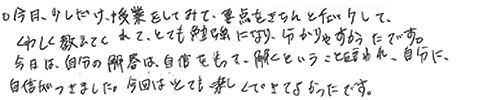 ○今日、少しだけ、授業をしてみて、要点をきちんと伝えりして、
くわしく教えてくれて、とても勉強になり、分かりやすかったです。
今日は、自分の解答は、自信をもって、解くということ言われ、自分に、
自信がつきました。今回はとても楽しくできてよかったです。